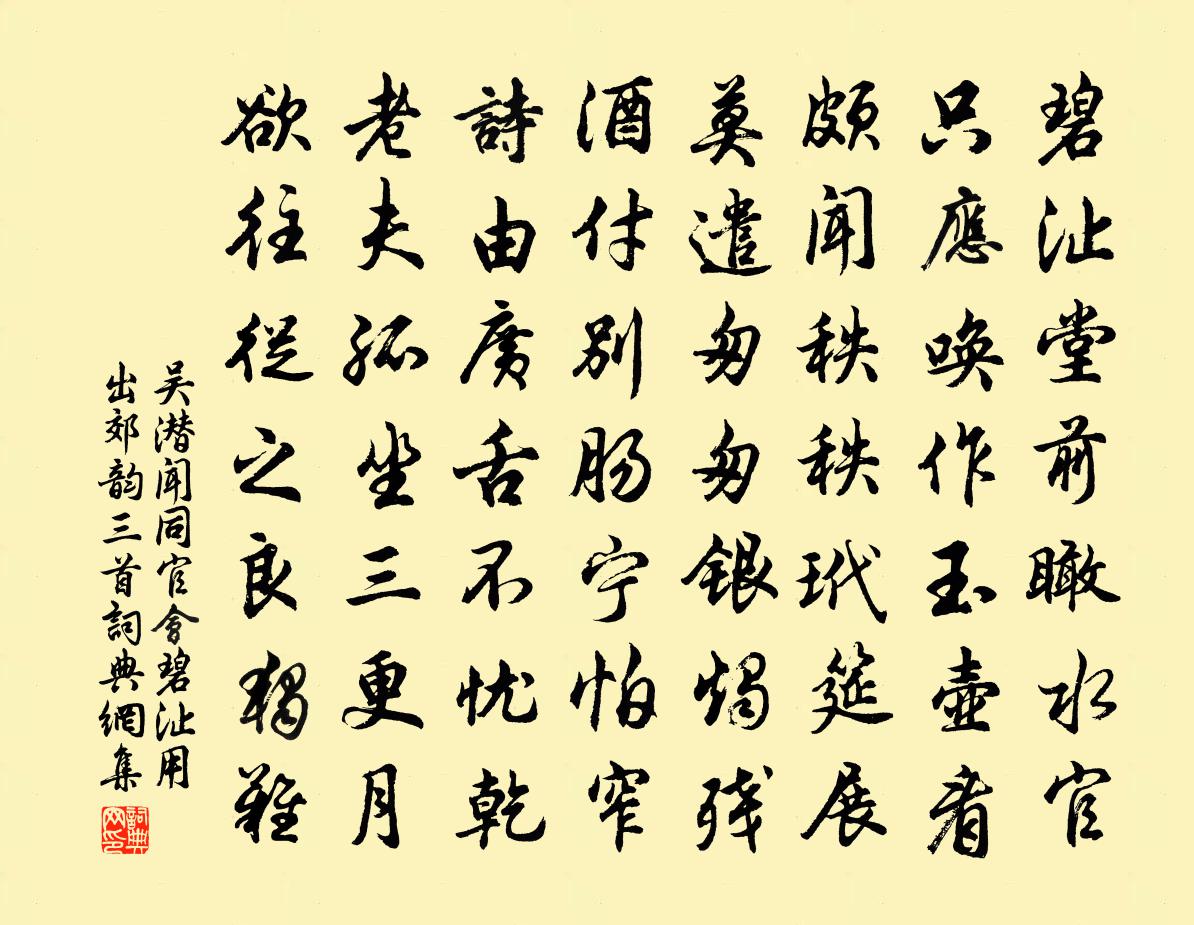 碧沚堂前瞰水官
只應唤作玉壺看
頗闻秩秩玳筵展
莫遣匆匆銀燭残
酒付别肠宁怕窄
詩由廣舌不忧乾
老夫孤坐三更月
欲往從之良獨難
吴潜闻同官會碧沚用
出郊韵三首詞典網集
詞典網印